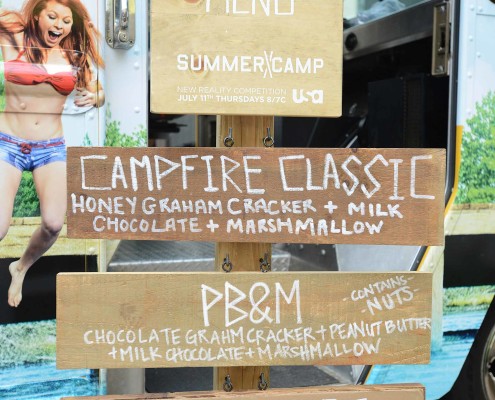 MENU
SUMMER CAMP
NEW REALITY COMPETITION
JULY 11TH THURSDAYS 8/7C USA
CAMPFIRE CLASSIC
HONEY GRAHAM CRACKER + MILK
CHOCOLATE + MARSHMALLOW
PB&M
-CONTAINS-
-NUTS-
CHOCOLATE GRAHM CRACKER + PEANUT BUTTER
+ MILK CHOCOLATE + MARSHMALLOW